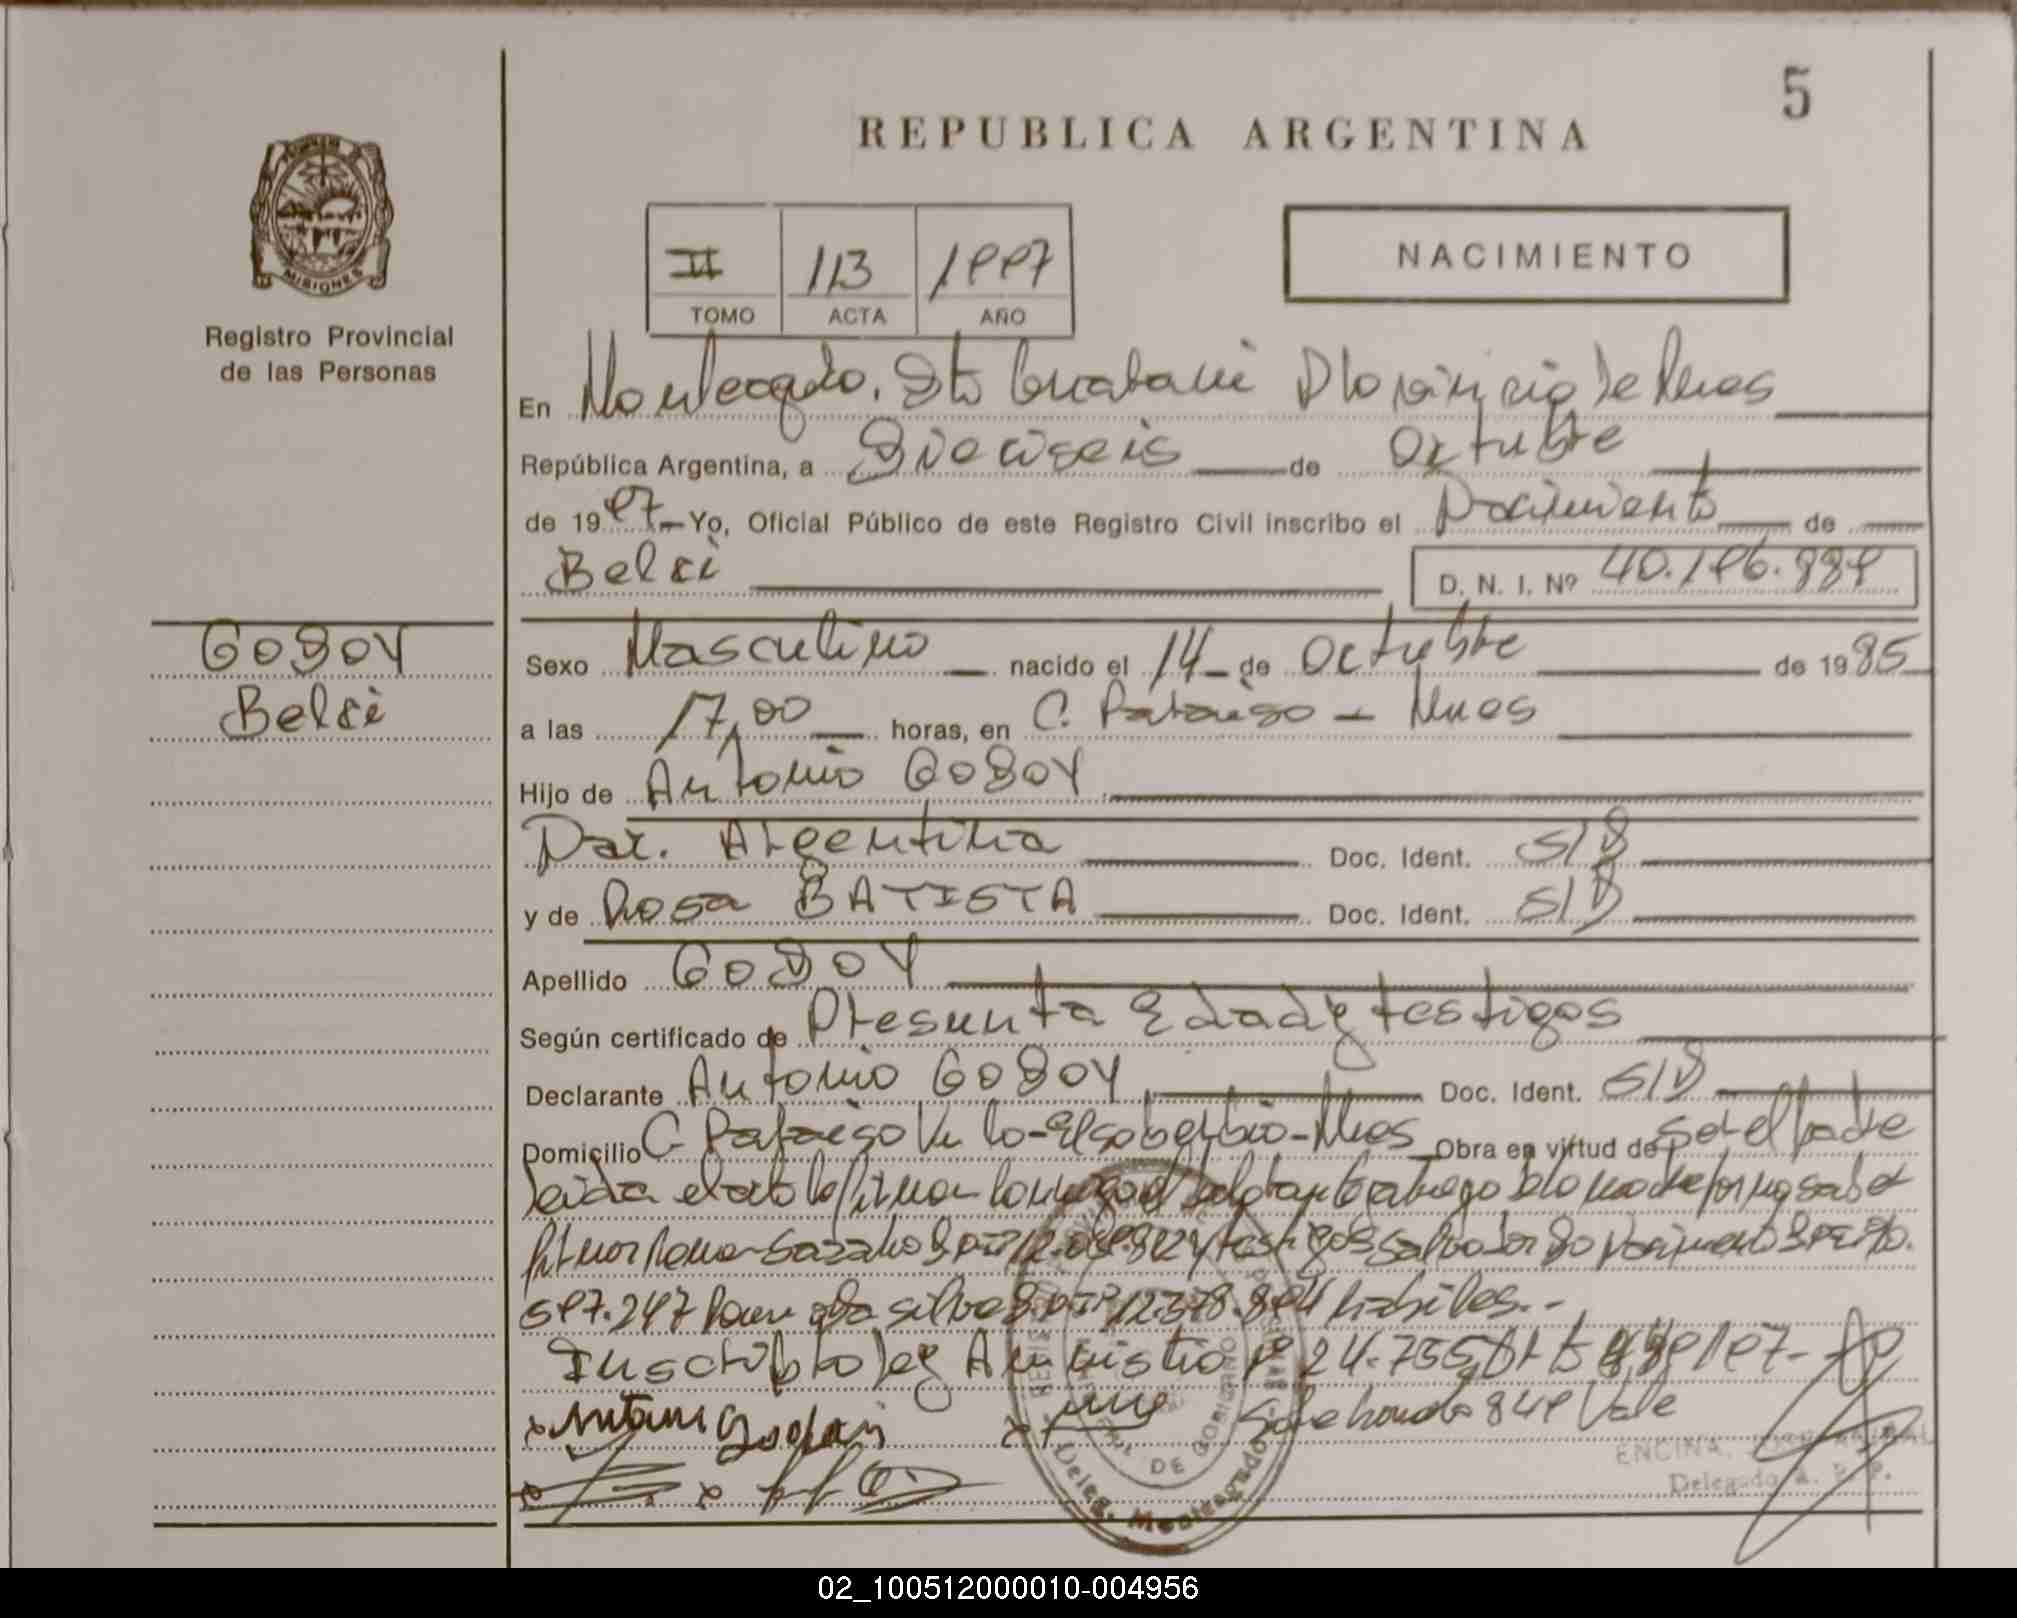 5
REPUBLICA ARGENTINA
MISIONES
Registro Provincial
de las Personas
II 113 1997
TOMO ACTA AÑO
NACIMIENTO
En Monteagudo. Dto Guarani Provincia de Mnes
República Argentina, a Dieciseis de Octubre
de 1997 Yo, Oficial Público de este Registro Civil inscribo el Nacimiento de
Belsi
D. N. I. Nº 40.196.999
GODOY
Belsi
Sexo Masculino nacido el 14 de Octubre de 1985
a las 17,00 horas, en C. Paraiso - Mnes
Hijo de Antonio GODOY
Nac. Argentina Doc. Ident. S/D
y de Rosa BATISTA Doc. Ident. S/D
Apellido GODOY
Según certificado de Presunta Edad y testigos
Declarante Antonio GODOY Doc. Ident. S/D
Domicilio C Paraiso El soberbio - Mnes Obra en virtud de ser el padre
leida el acta la firman por no saber
firmar y testigos Nacimiento
597.247 Silva habiles.-
Inscripto ley Amnistia 24.755
Sobre borrado 849 Vale
ENCINA,
Delegado R. P. P.
DE GOBIERNO
Deleg. Monteagudo
02_100512000010-004956